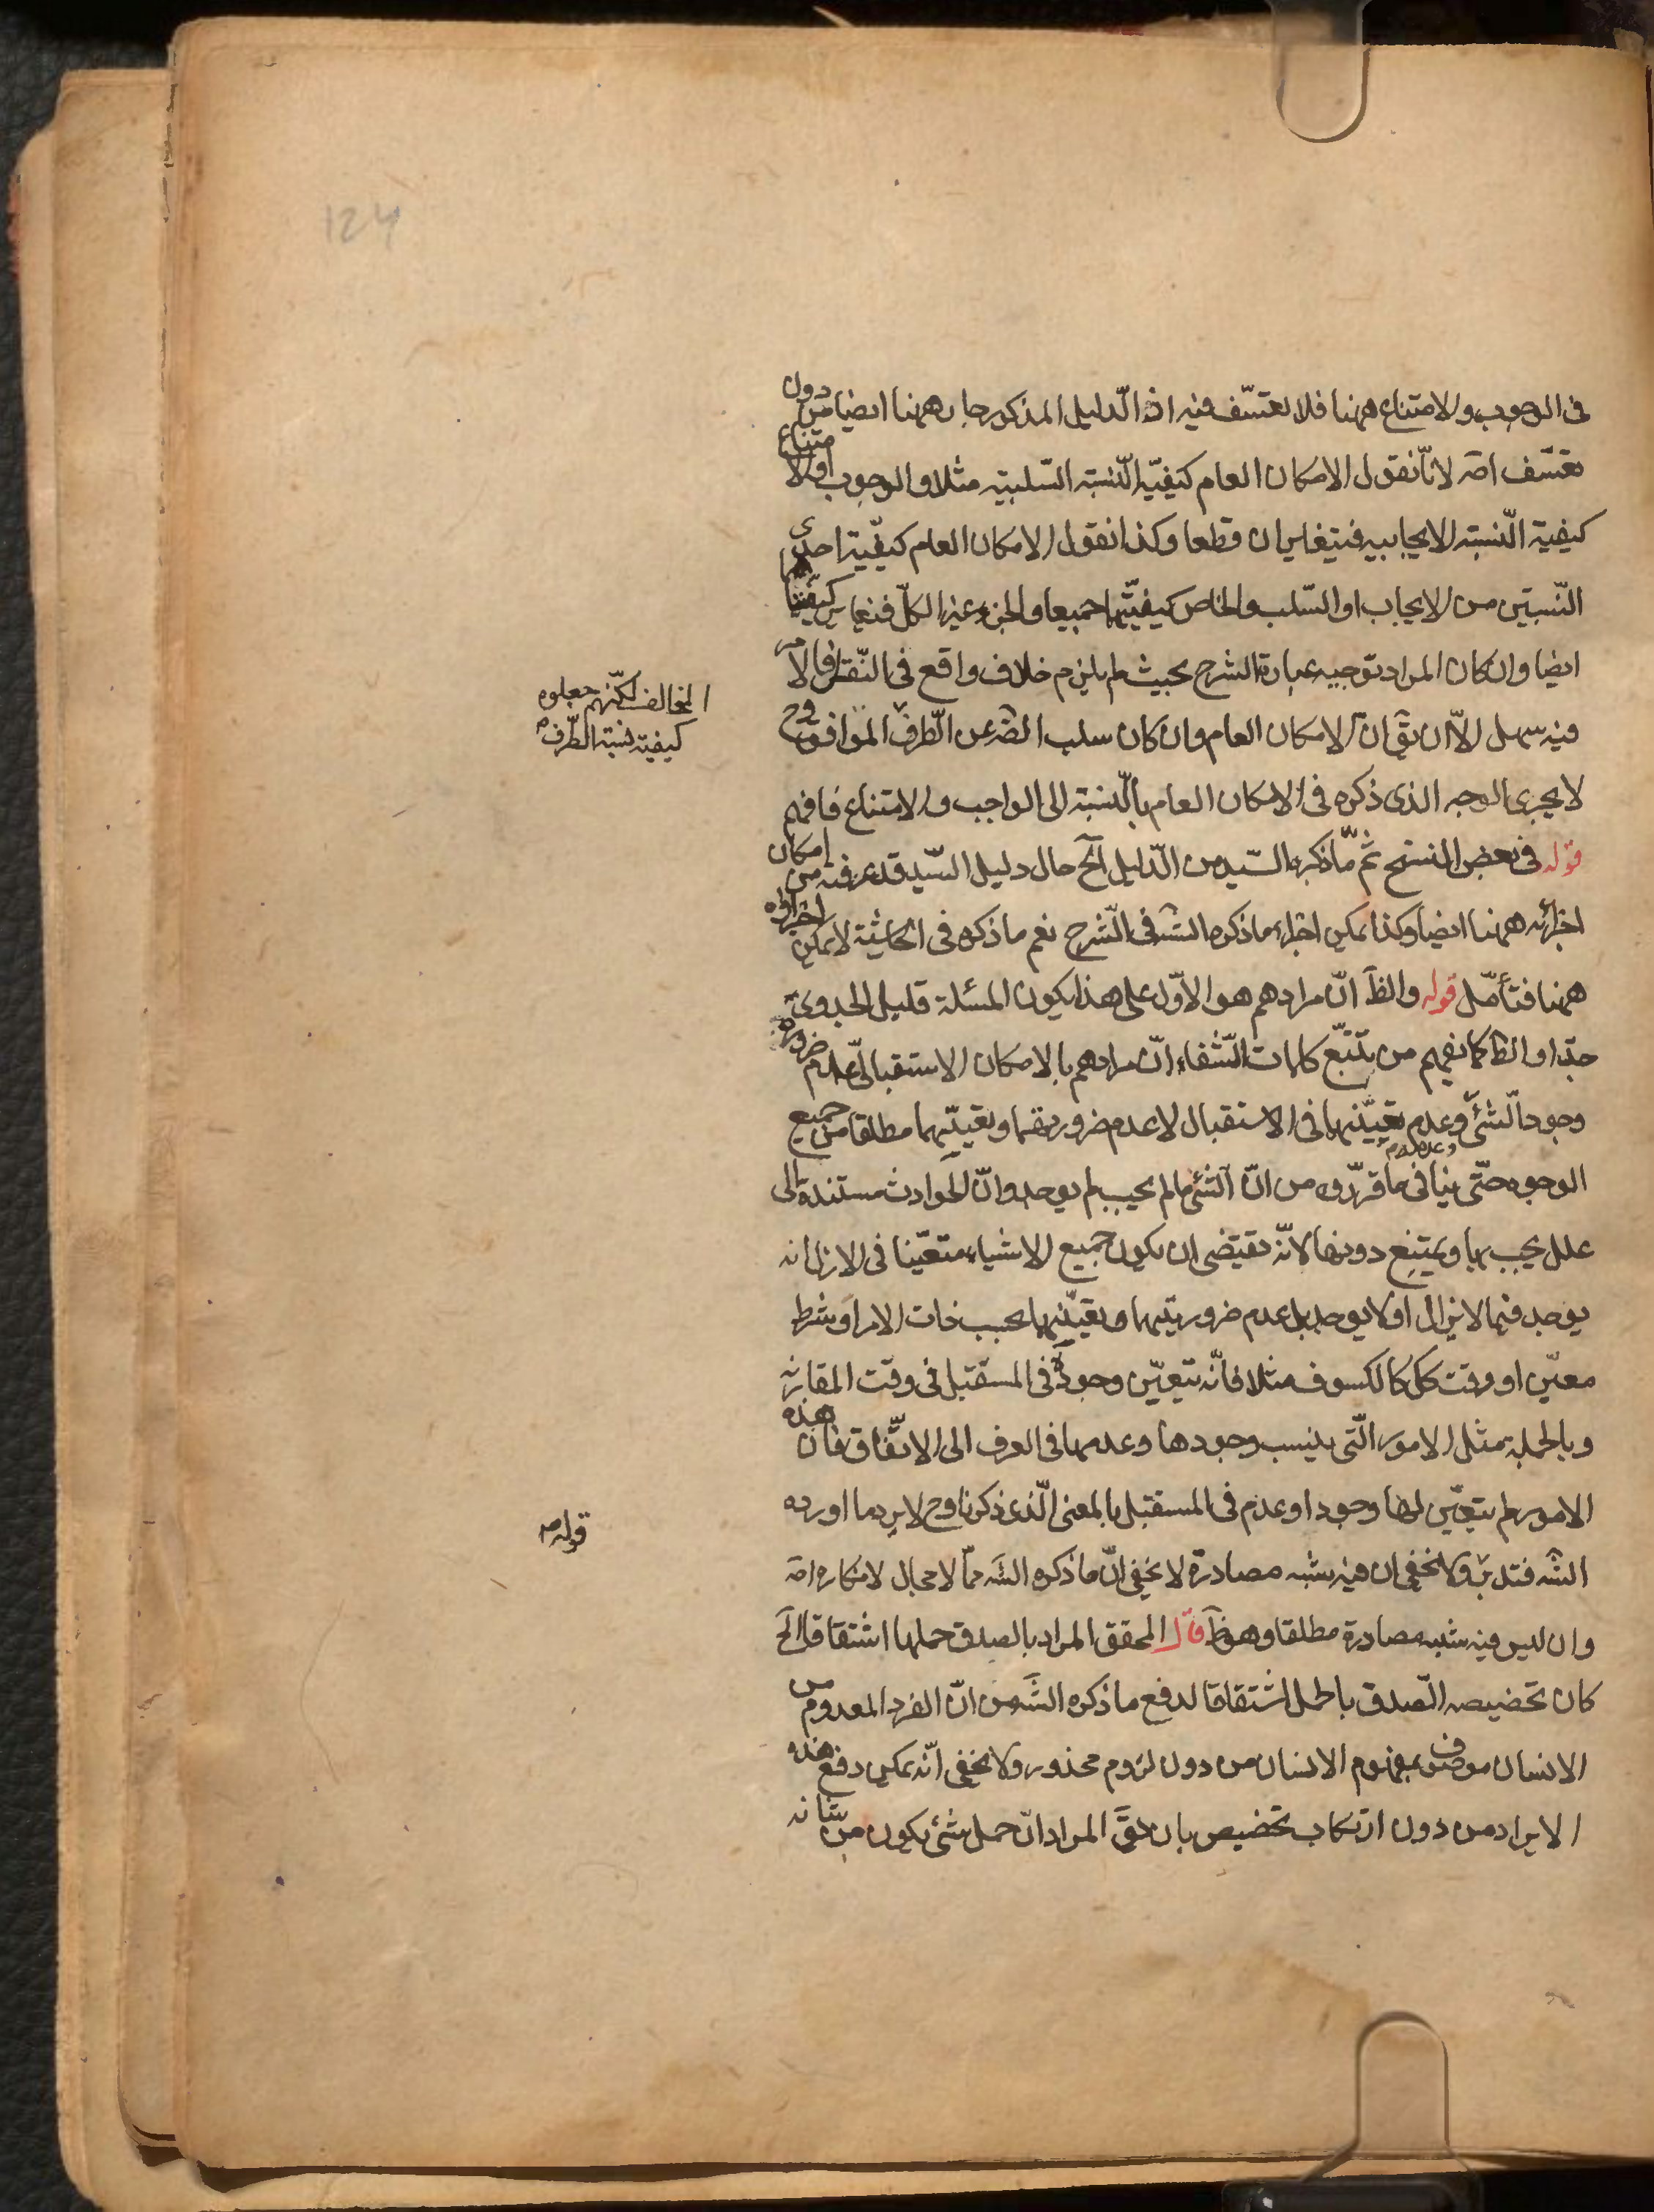 فى الوجوب والامتناع ههنا فلا تعسّف فيه اذ الدّليل المذكور جار ههنا ايضا من دون
تعسّف اصة لانّا نقول الامكان العام كيفيّة النّسبة السّلبيّة مثلا والوجوب او الامتناع
كيفية النّسبة الايجابيه فيتغايران قطعا وكذا نقول الامكان العام كيفيّة احدى
النّسبتين من الايجاب او السّلب والخاص كيفيّتهما جميعا والجزء غير الكلّ فتغاير كيفيّتهما
ايضا وان كان المراد توجيه عبارة الشرح بحيث لم يلزم خلاف واقع فى النّقل فالامر
فيه سهل الّا ان يقَ انّ الامكان العام وان كان سلب الضّ عن الطّرف الموافق وح
لا يجرى الوجه الذى ذكره فى الامكان العام بالنّسبة الى الواجب والامتناع فافهم
قوله فى بعض النسخ ثمّ ما ذكره السّيد من الدّليل آلخ حال دليل السّيد قد عرفته من امكان
اجرائه ههنا ايضا وكذا يمكن اجراء ما ذكره الشَ فى الشّرح نعم ما ذكره فى الحاشية لا يمكن اجراؤه
ههنا فتأمّل قوله والظَ انّ مرادهم هو الاوّل على هذا يكون المسئلة قليل الجدوى
جدّا والظ كما يفهم من تتبّع كلمات الشّفاء انّ مرادهم بالامكان الاستقبالىّ عدم ضرورة
وجود الشّئ وعدمه وعدم تعيّنهما فى الاستقبال لا عدم ضرورتهما وتعيّنهما مطلقا من جميع
الوجوه حتّى ينافى ما قرّروه من انّ الشّئ ما لم يجب لم يوجد وانّ الحوادث مستندة الى
علل يجب بها ويمتنع دونها لانّه يقتضى ان يكون جميع الاشياء متعيّنا فى الازل انه
يوجد فيما لا يزال او لا يوجد بل عدم ضروريّتهما وتعيّنهما بحسب ذات الامر او شرط
معيّن او وقت كك كالكسوف مثلا فانّه يتعيّن وجوده فى المستقبل فى وقت المقارنه
وبالجملة مثل الامور الّتى ينسب وجودها وعدمها فى العرف الى الاتّفاق فان هذه
الامور لم يتعيّن لها وجود او عدم فى المستقبل بالمعنى الّذى ذكرنا وح لا يرد ما اورده
الشَ فتدبّر ولا يخفى ان فيه شبه مصادرة لا يخفى انّ ما ذكره الشَ ممّا لا مجال لانكاره اصَ
وان ليس فيه شبه مصادرة مطلقا وهو ظَ قال المحقق المراد بالصدق حملها اشتقاقا آلخ
كان تخصيصه الصّدق بالحمل اشتقاقا لدفع ما ذكره الشَ من انّ الفرد المعدوم من
الانسان موصوف بمفهوم الانسان من دون لزوم محذور ولا يخفى انّه يمكن دفع هذه
الايراد من دون ارتكاب تخصيص بان يقَ المراد انّ حمل شئ يكون من شانه
المخالف لكنّهم جعلوه
كيفية نسبة الطّرف
قوله